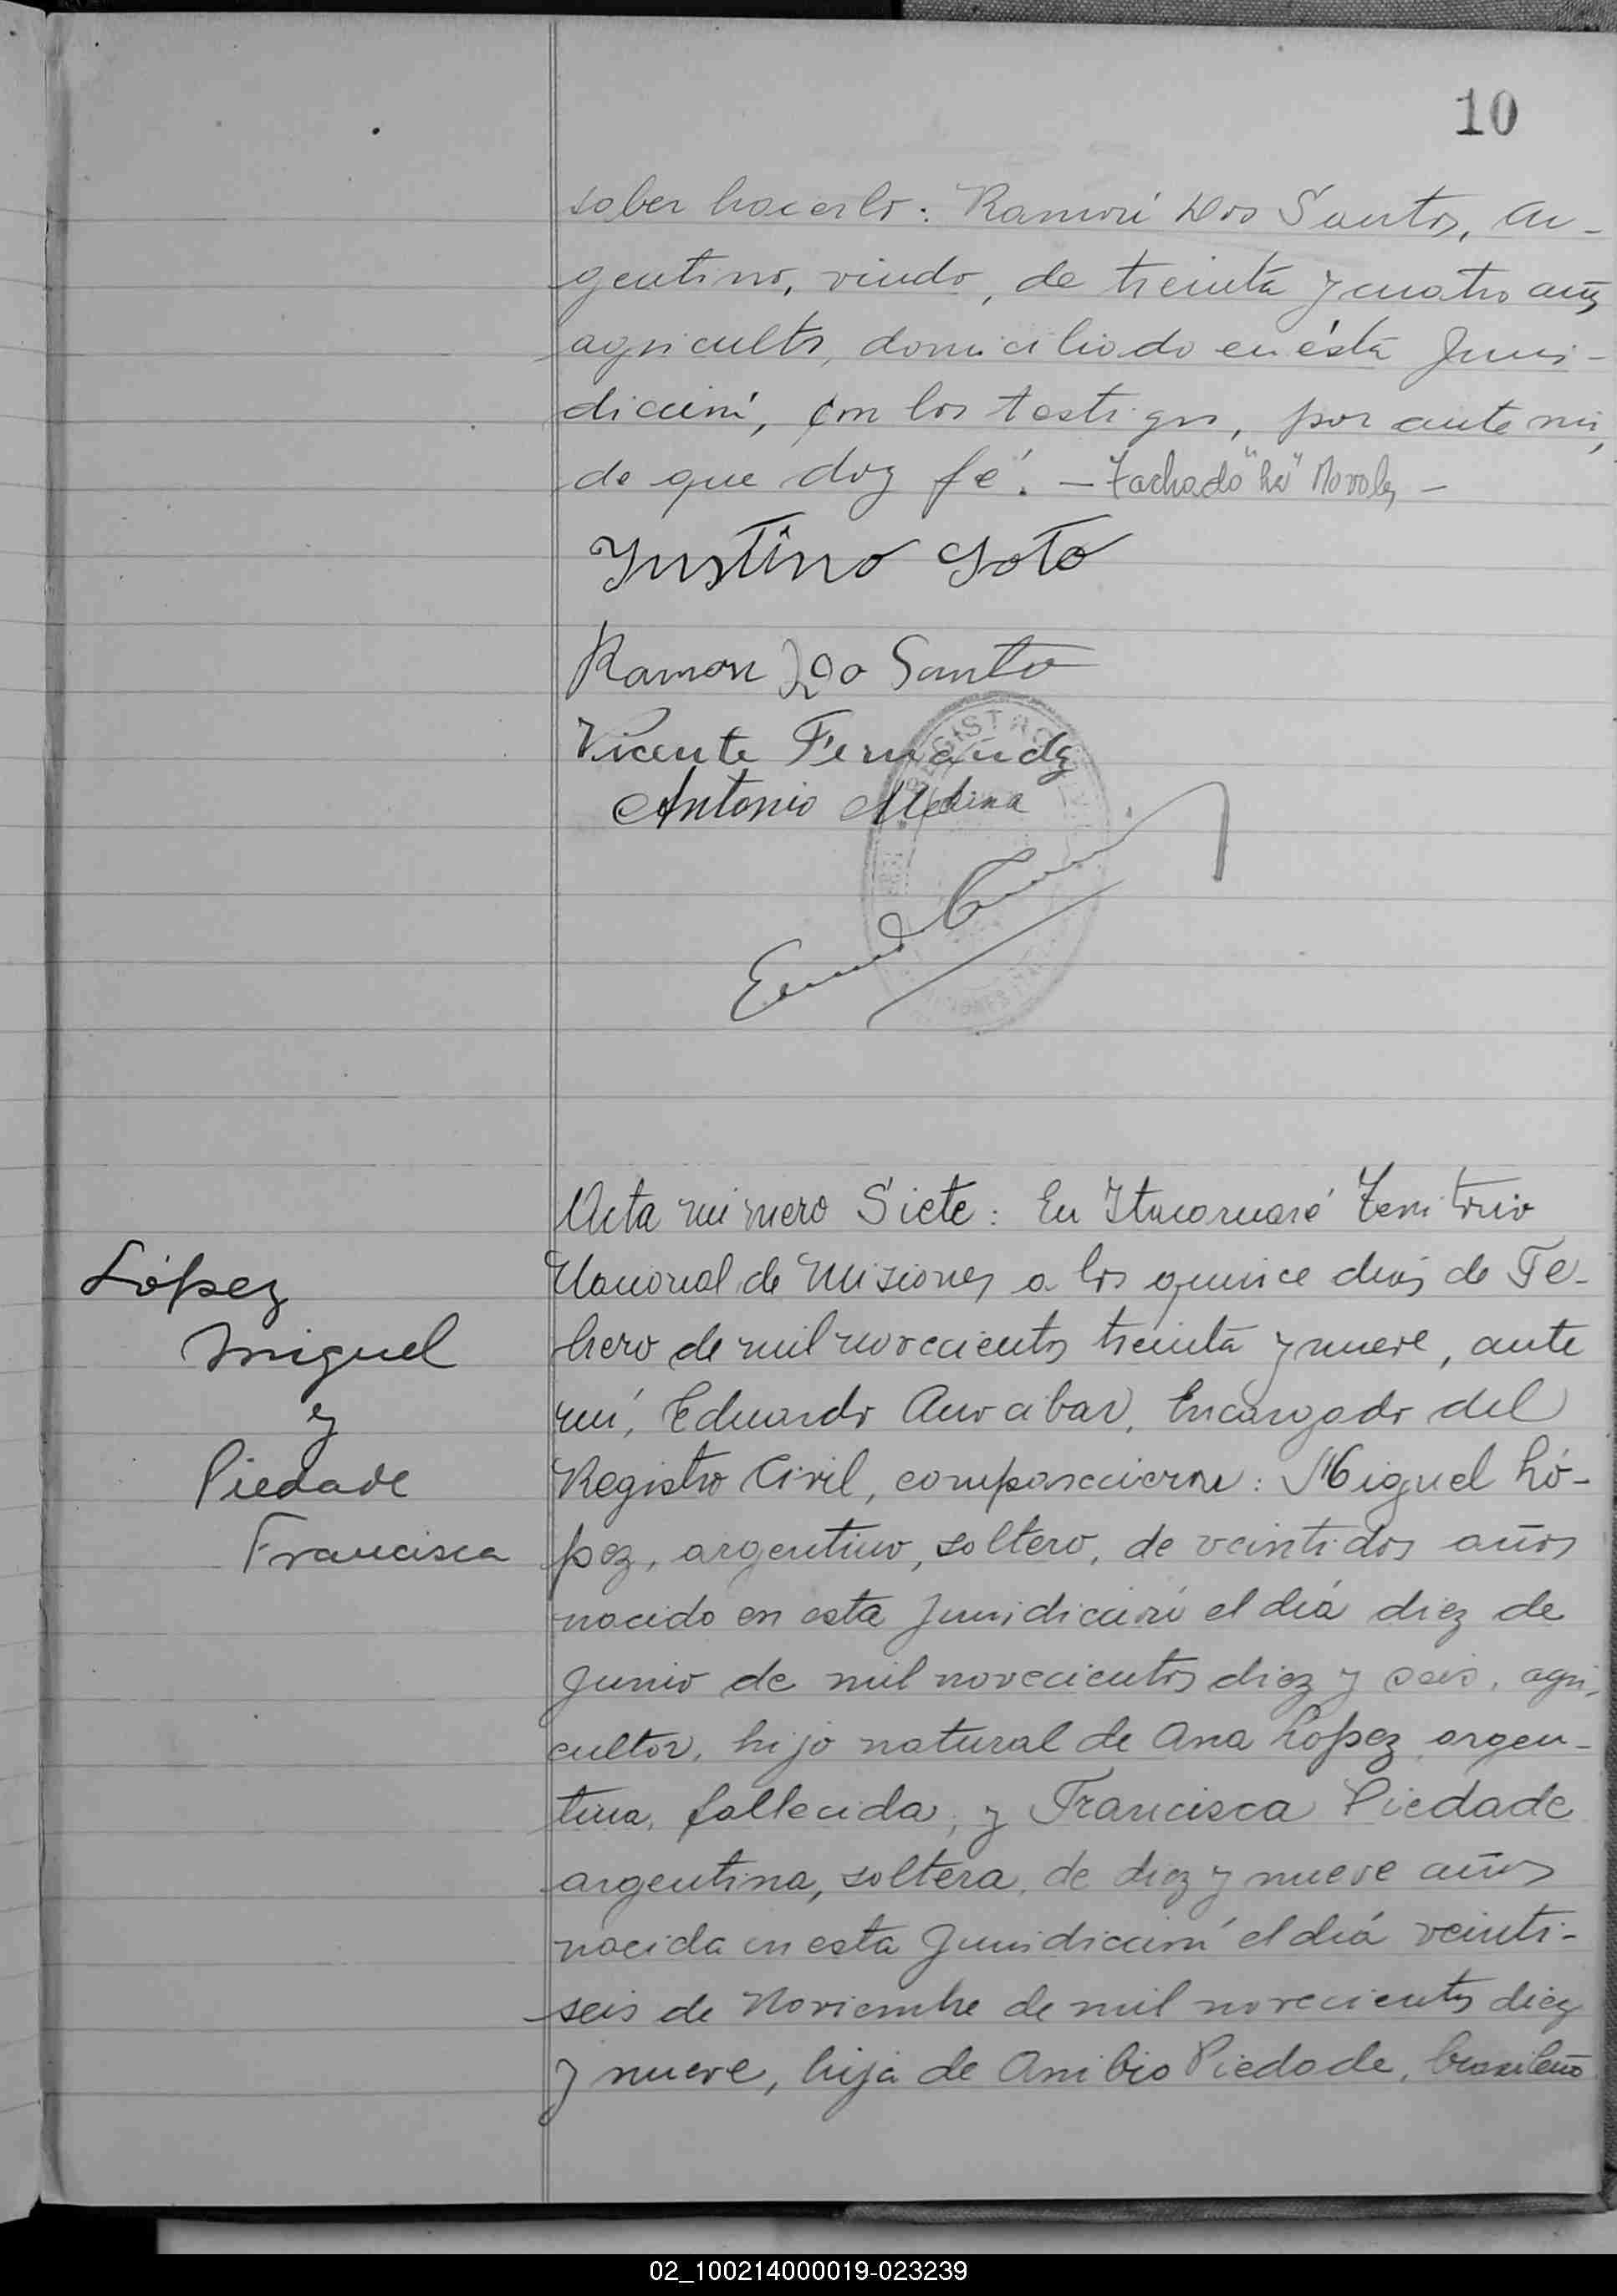 10
saber hacerlo: Ramón Dos Santos, ar-
gentino, viudo, de treinta y cuatro años
agricultor, domiciliado en ésta Juris-
dicción, con los testigos, por ante mi,
de que doy fé. - Tachado "ha" No vale, -
Justino Soto
Ramon Do Santo
Vicente Fernández
Antonio Medina
REGISTRO
Acta número Siete: En Itacaruaré Territorio
Nacional de Misiones a los quince días de Fe-
brero de mil novecientos treinta y nueve, ante
mí, Eduardo Encargado del
Registro Civil, comparecieron: Miguel Ló-
pez, argentino, soltero, de veintidos años
nacido en esta Jurisdicción el día diez de
Junio de mil novecientos diez y seis, agri-
cultor, hijo natural de Ana López argen-
tina, fallecida, y Francisca Piedade
argentina, soltera, de diez y nueve años
nacida en esta Jurisdicción el día veinti-
seis de Noviembre de mil novecientos diez
y nueve, hija de Piedade, brasileño
López
Miguel
y
Piedade
Francisca
02_100214000019-023239